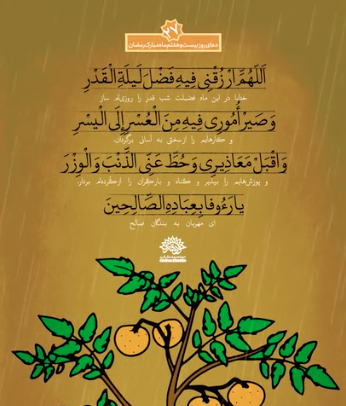 ۲۷
دعای روز بیست و هفتم ماه مبارک رمضان
اَللّهُمَّ ارْزُقْنی فیهِ فَضْلَ لَیلَةِ الْقَدْرِ
خدایا در این ماه فضیلت شب قدر را روزی‌ام ساز
وَ صَیِّرْ أُمُوری فیهِ مِنَ الْعُسْرِ إِلَی الْیُسْرِ
و کارهایم را از سختی به آسانی برگردان.
وَ اقْبَلْ مَعَاذیری وَ حُطَّ عَنِّی الذَّنْبَ وَ الْوِزْرَ
و پوزش‌هایم را بپذیر و گناه و بارگران را از گرده‌ام بردار.
یا رَءُوفا بِعِبَادِهِ الصَّالِحِینَ
ای مهربان به بندگان صالح